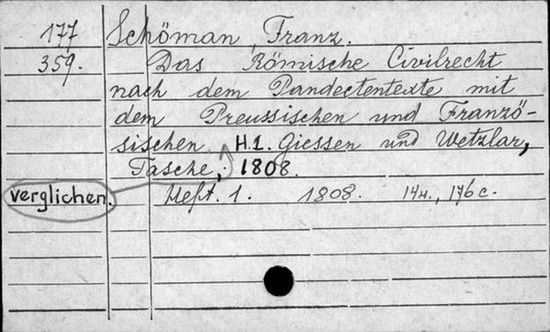 177 Schöman, Franz.
359. Das Römische Civilrecht
nach dem Pandectentexte mit
dem Preussischen und Franzö-
sischen H.1. Giessen und Wetzlar,
Tasche, 1808.
verglichen. Heft. 1. 1808. 14н., 176 c.